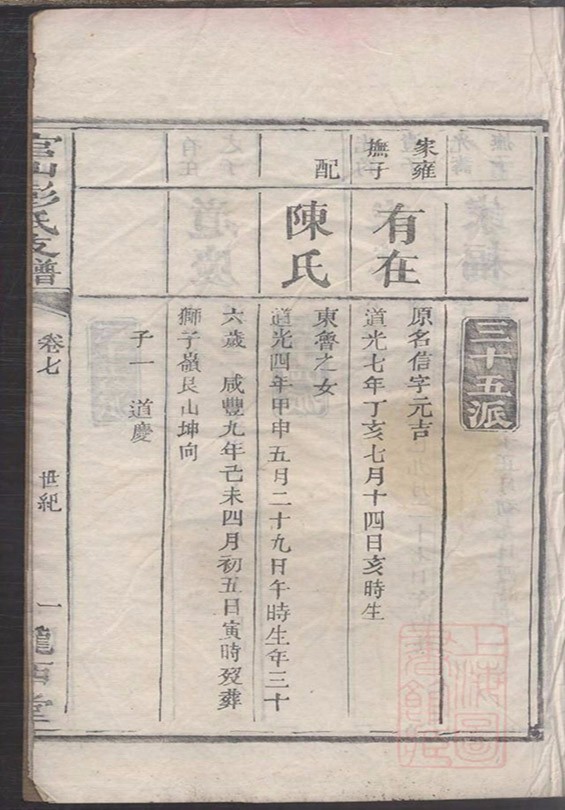 三十五派
家雍
撫子
有在
原名信字元吉
道光七年丁亥七月十四日亥時生
配
陳氏
東魯之女
道光四年甲申五月二十九日午時生年三十
六歲 咸豐九年己未四月初五日寅時歿葬
獅子嶺艮山坤向
子一 道慶
宮山彭氏支譜
卷七
世紀
一
上海圖
書館藏